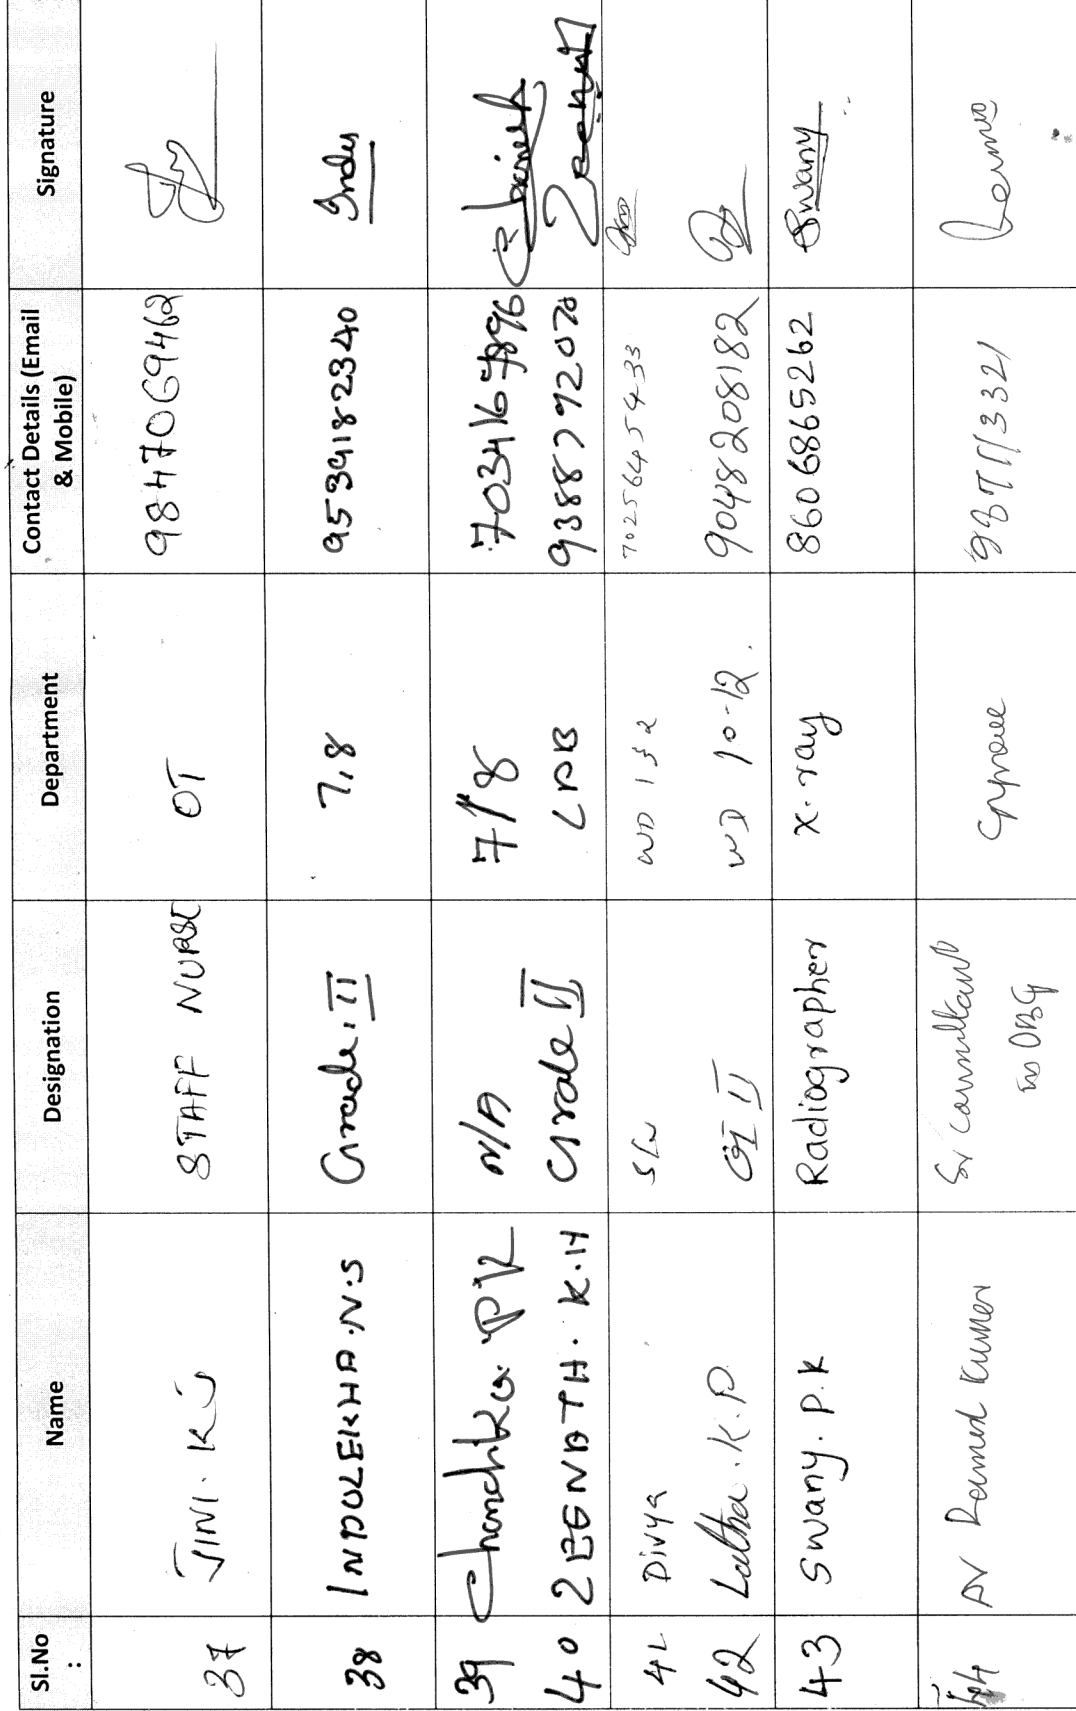 Sl.No : Name Designation Department Contact Details (Email & Mobile) Signature
37 JINI. K J STAFF NURSE OT 9847069462
38 INDULEKHA.N.S Grade. II 7,8 9539182340 Indu
39 Chandrika. PK N/A 7/8
40 ZEENATH. K.H Grade II 9388792070 Zeenath
41 Divya WD 1 & 2 7025645433
42 Latha. K.P. Gr II WD 10-12. 9048208182
43 Swany. P. K Radiographer X-ray 8606865262 Swany
44 Kumar Sr Consultant
in OBG